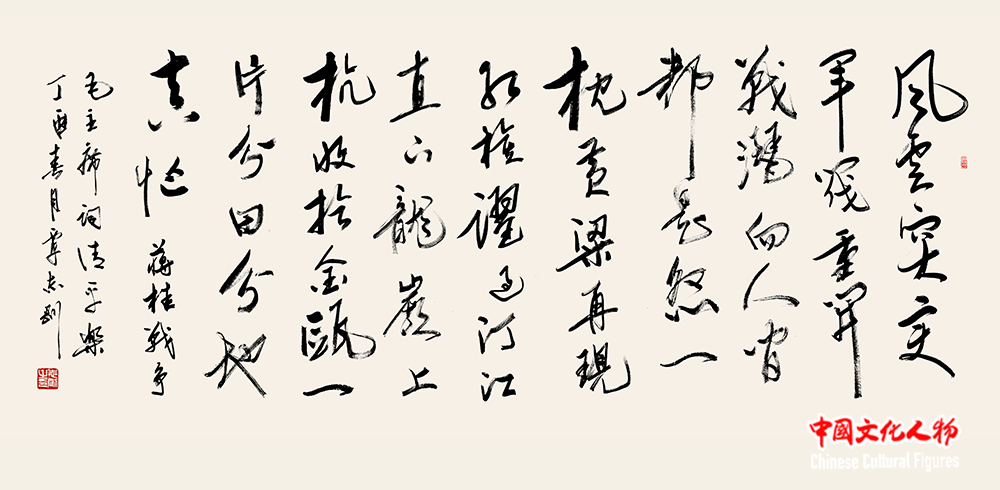 風雲突变
軍閥重開
戰灑向人间
都是怨一
枕黄粱再現
红旗躍过汀江
直下龍巖上
杭收拾金甌一
片分田分地
真忙 蒋桂戰争
毛主席词清平樂
丁酉春月覃志刚
中國文化人物
Chinese Cultural Figures